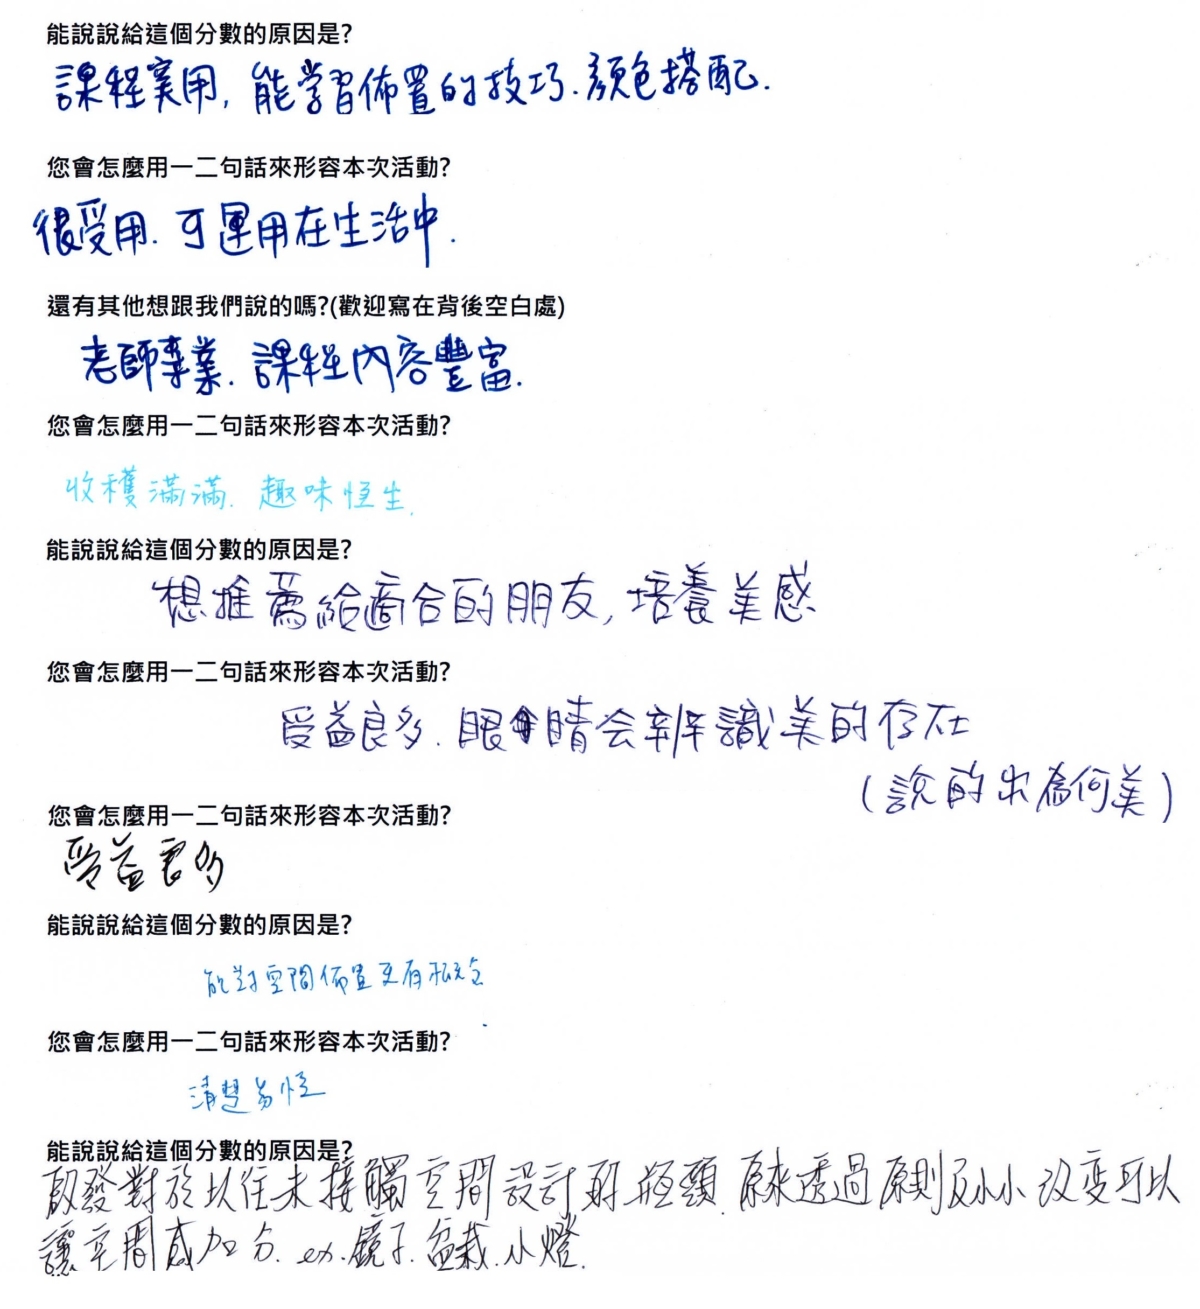 能說說給這個分數的原因是?
課程実用, 能学習佈置的技巧.顏色搭配.
您會怎麼用一二句話來形容本次活動?
很受用. 可運用在生活中.
還有其他想跟我們說的嗎?(歡迎寫在背後空白處)
老師專業. 課程內容豐富.
您會怎麼用一二句話來形容本次活動?
收穫滿滿. 趣味恒生.
能說說給這個分數的原因是?
想推薦給適合的朋友, 培養美感
您會怎麼用一二句話來形容本次活動?
受益良多. 眼睛会辨識美的存在
(說的出為何美)
您會怎麼用一二句話來形容本次活動?
受益良多
能說說給這個分數的原因是?
能對空間佈置更有概念
您會怎麼用一二句話來形容本次活動?
清楚易懂
能說說給這個分數的原因是?
啟發對於以往未接觸空間設計的瓶頸. 原來透過原則及小小改变可以
讓空間感加分. ex.鏡子.盆栽.小燈.